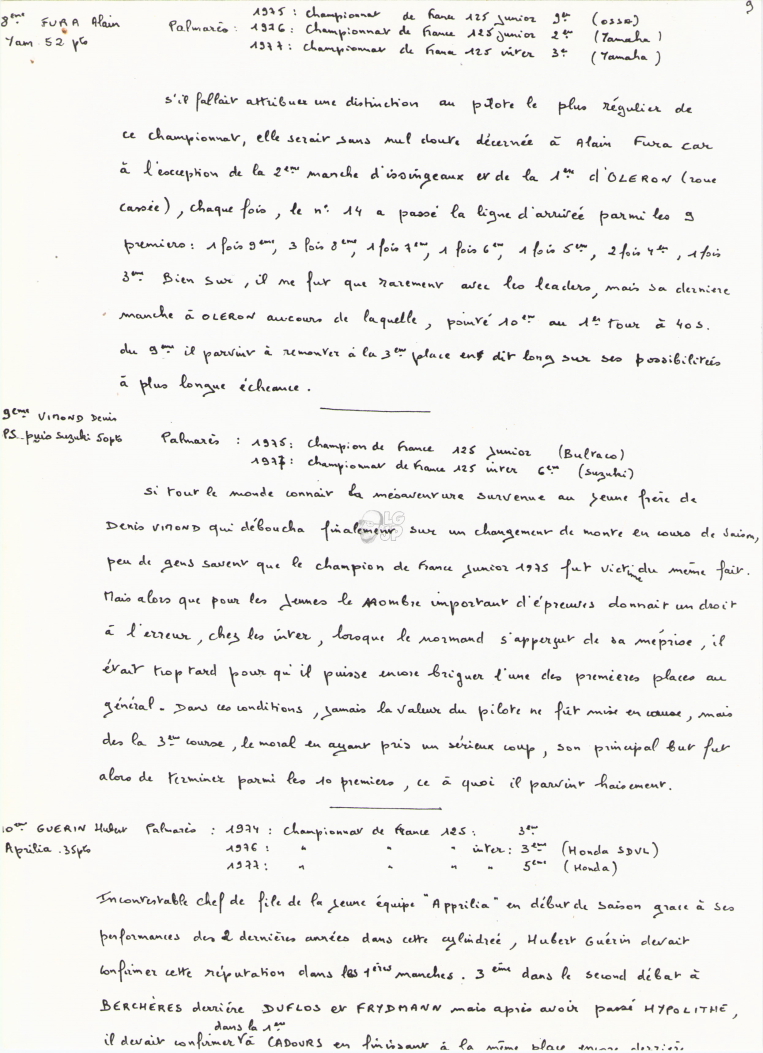 9
8ème FURA Alain
Yam 52 pts
1975 : Championnat de France 125 Junior 9ème (OSSA)
Palmarès : 1976 : Championnat de France 125 Junior 2ème (Yamaha)
1977 : Championnat de France 125 inter 3e (Yamaha)
s'il fallait attribuer une distinction au pilote le plus régulier de
ce championnat, elle serait sans nul doute décernée à Alain Fura car
à l'exception de la 2ème manche d'issingeaux et de la 1ère d'OLERON (roue
cassée), chaque fois, le n° 14 a passé la ligne d'arrivée parmi les 9
premiers : 1 fois 9ème, 3 fois 8ème, 1 fois 7ème, 1 fois 6ème, 1 fois 5ème, 2 fois 4ème, 1 fois
3ème. Bien sur, il ne fut que rarement avec les leaders, mais sa derniere
manche à OLERON aucours de laquelle, pointé 10ème au 1er tour à 40s.
du 9ème il parvint à remonter à la 3ème place en dit long sur ses possibilitées
à plus longue écheance.
9ème VIMOND Denis
P.S. puis Suzuki 50pts
Palmarès : 1975 : Champion de France 125 Junior (Bultaco)
1977 : championnat de France 125 inter 6ème (Suzuki)
si tout le monde connait la mésaventure survenue au jeune frère de
Denis VIMOND qui déboucha finalement sur un changement de monte en cours de saison,
peu de gens savent que le champion de France junior 1975 fut victime du même fait.
Mais alors que pour les Jeunes le Nombre important d'épreuves donnait un droit
à l'erreur, chez les inter, lorsque le normand s'apperçut de sa méprise, il
était trop tard pour qu'il puisse encore briguer l'une des premieres places au
général. Dans ces conditions, jamais la valeur du pilote ne fût mise en cause, mais
des la 3ème course, le moral en ayant pris un sérieux coup, son principal but fut
alors de terminer parmi les 10 premiers, ce à quoi il parvint haisement.
10ème GUERIN Hubert
Aprilia .35pts
Palmarès : 1974 : Championnat de France 125 : 3ème
1976 : " " " inter : 3ème (Honda SDVL)
1977 : " " " " 5ème (Honda)
Incontestable chef de file de la jeune équipe "Apprilia" en début de saison grace à ses
performances des 2 dernières années dans cette cylindreé, Hubert Guérin devait
confirmer cette réputation dans les 1ères manches. 3ème dans le second débat à
BERCHÈRES derrière DUFLOS et FRYDMANN mais après avoir passé HYPOLITHE,
dans la 1ère
il devait confirmer à CADOURS en finissant à la même place encore derrière